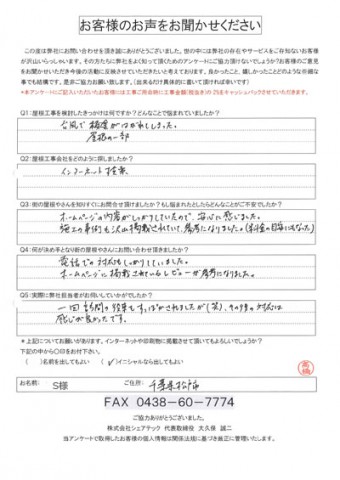 お客様のお声をお聞かせください
この度は弊社にお問い合わせを頂き誠にありがとうございました。世の中には弊社の存在やサービスをご存知ないお客様
が沢山いらっしゃいます。その方たちに弊社をよく知って頂くためのアンケートにご協力頂けないでしょうか？お客様のご意見
をお聞かせいただき今後の活動に反映させていただきたいと考えております。良かったこと、嬉しかったことどのような些細な
事でも結構です、是非ご協力お願い致します。（出来るだけ具体的に書いて頂ければ幸いです）
Q1：屋根工事を検討したきっかけは何ですか？どんなことで悩まれていましたか？
台風で棟瓦がはがれてしまった。
屋根の一部
Q2：屋根工事会社をどのように探しましたか？
インターネット検索
Q3：街の屋根やさんを知りすぐにお問合せ頂けましたか？もし悩まれたとしたらどんなことがご不安でしたか？
ホームページの内容がしっかりしていたので、安心に感じました。
施工の事例も沢山掲載されていて、参考になりました。（料金の目安にもなった）
Q4：何が決め手となり街の屋根やさんにお問い合わせ頂きましたか？
電話での対応もしっかりしていました。
ホームページに掲載されているレビューが参考になりました。
Q5：実際に弊社担当者がお伺いしていかがでしたか？
一回訪問の約束をすっぽかされましたが（笑）、その後の対応は
感じが良かったです。
＊上記についてお願いがあります。インターネットや印刷物に掲載させて頂いてもよろしいでしょうか？
下記の中から〇印をお付け下さい。
（ ）名前を出してもよい （✓）イニシャルなら出してもよい
お名前： S様 ご住所： 千葉県松戸市
FAX 0438-60-7774
ご協力ありがとうございました。
株式会社シェアテック 代表取締役 大久保 誠二
当アンケートで取得したお客様の個人情報は関係法規に基づき厳正に管理いたします。